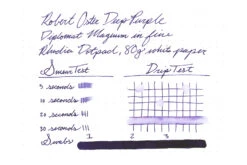 Robert Oster Deep Purple
Diplomat Magnum in fine
Rhodia Dotpad, 80g white paper
Smear Test
Drip Test
5 seconds
10 seconds
20 seconds
30 seconds
Swabs
1
2
3